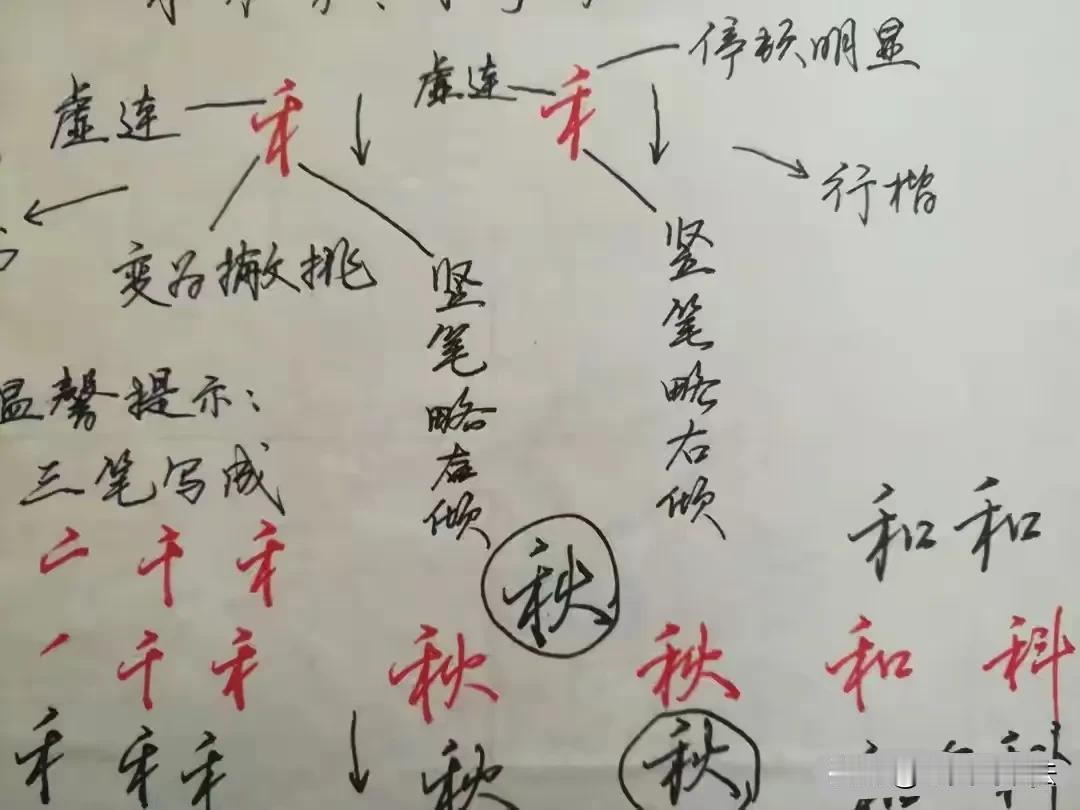 虚连
禾
虚连
禾
停顿明显
行楷
变为撇挑
竖笔略右倾
竖笔略右倾
温馨提示：
三笔写成
和 和
二 千 禾
秋
丿 千 禾
秋 秋 和 科
禾 禾 禾
秋 秋